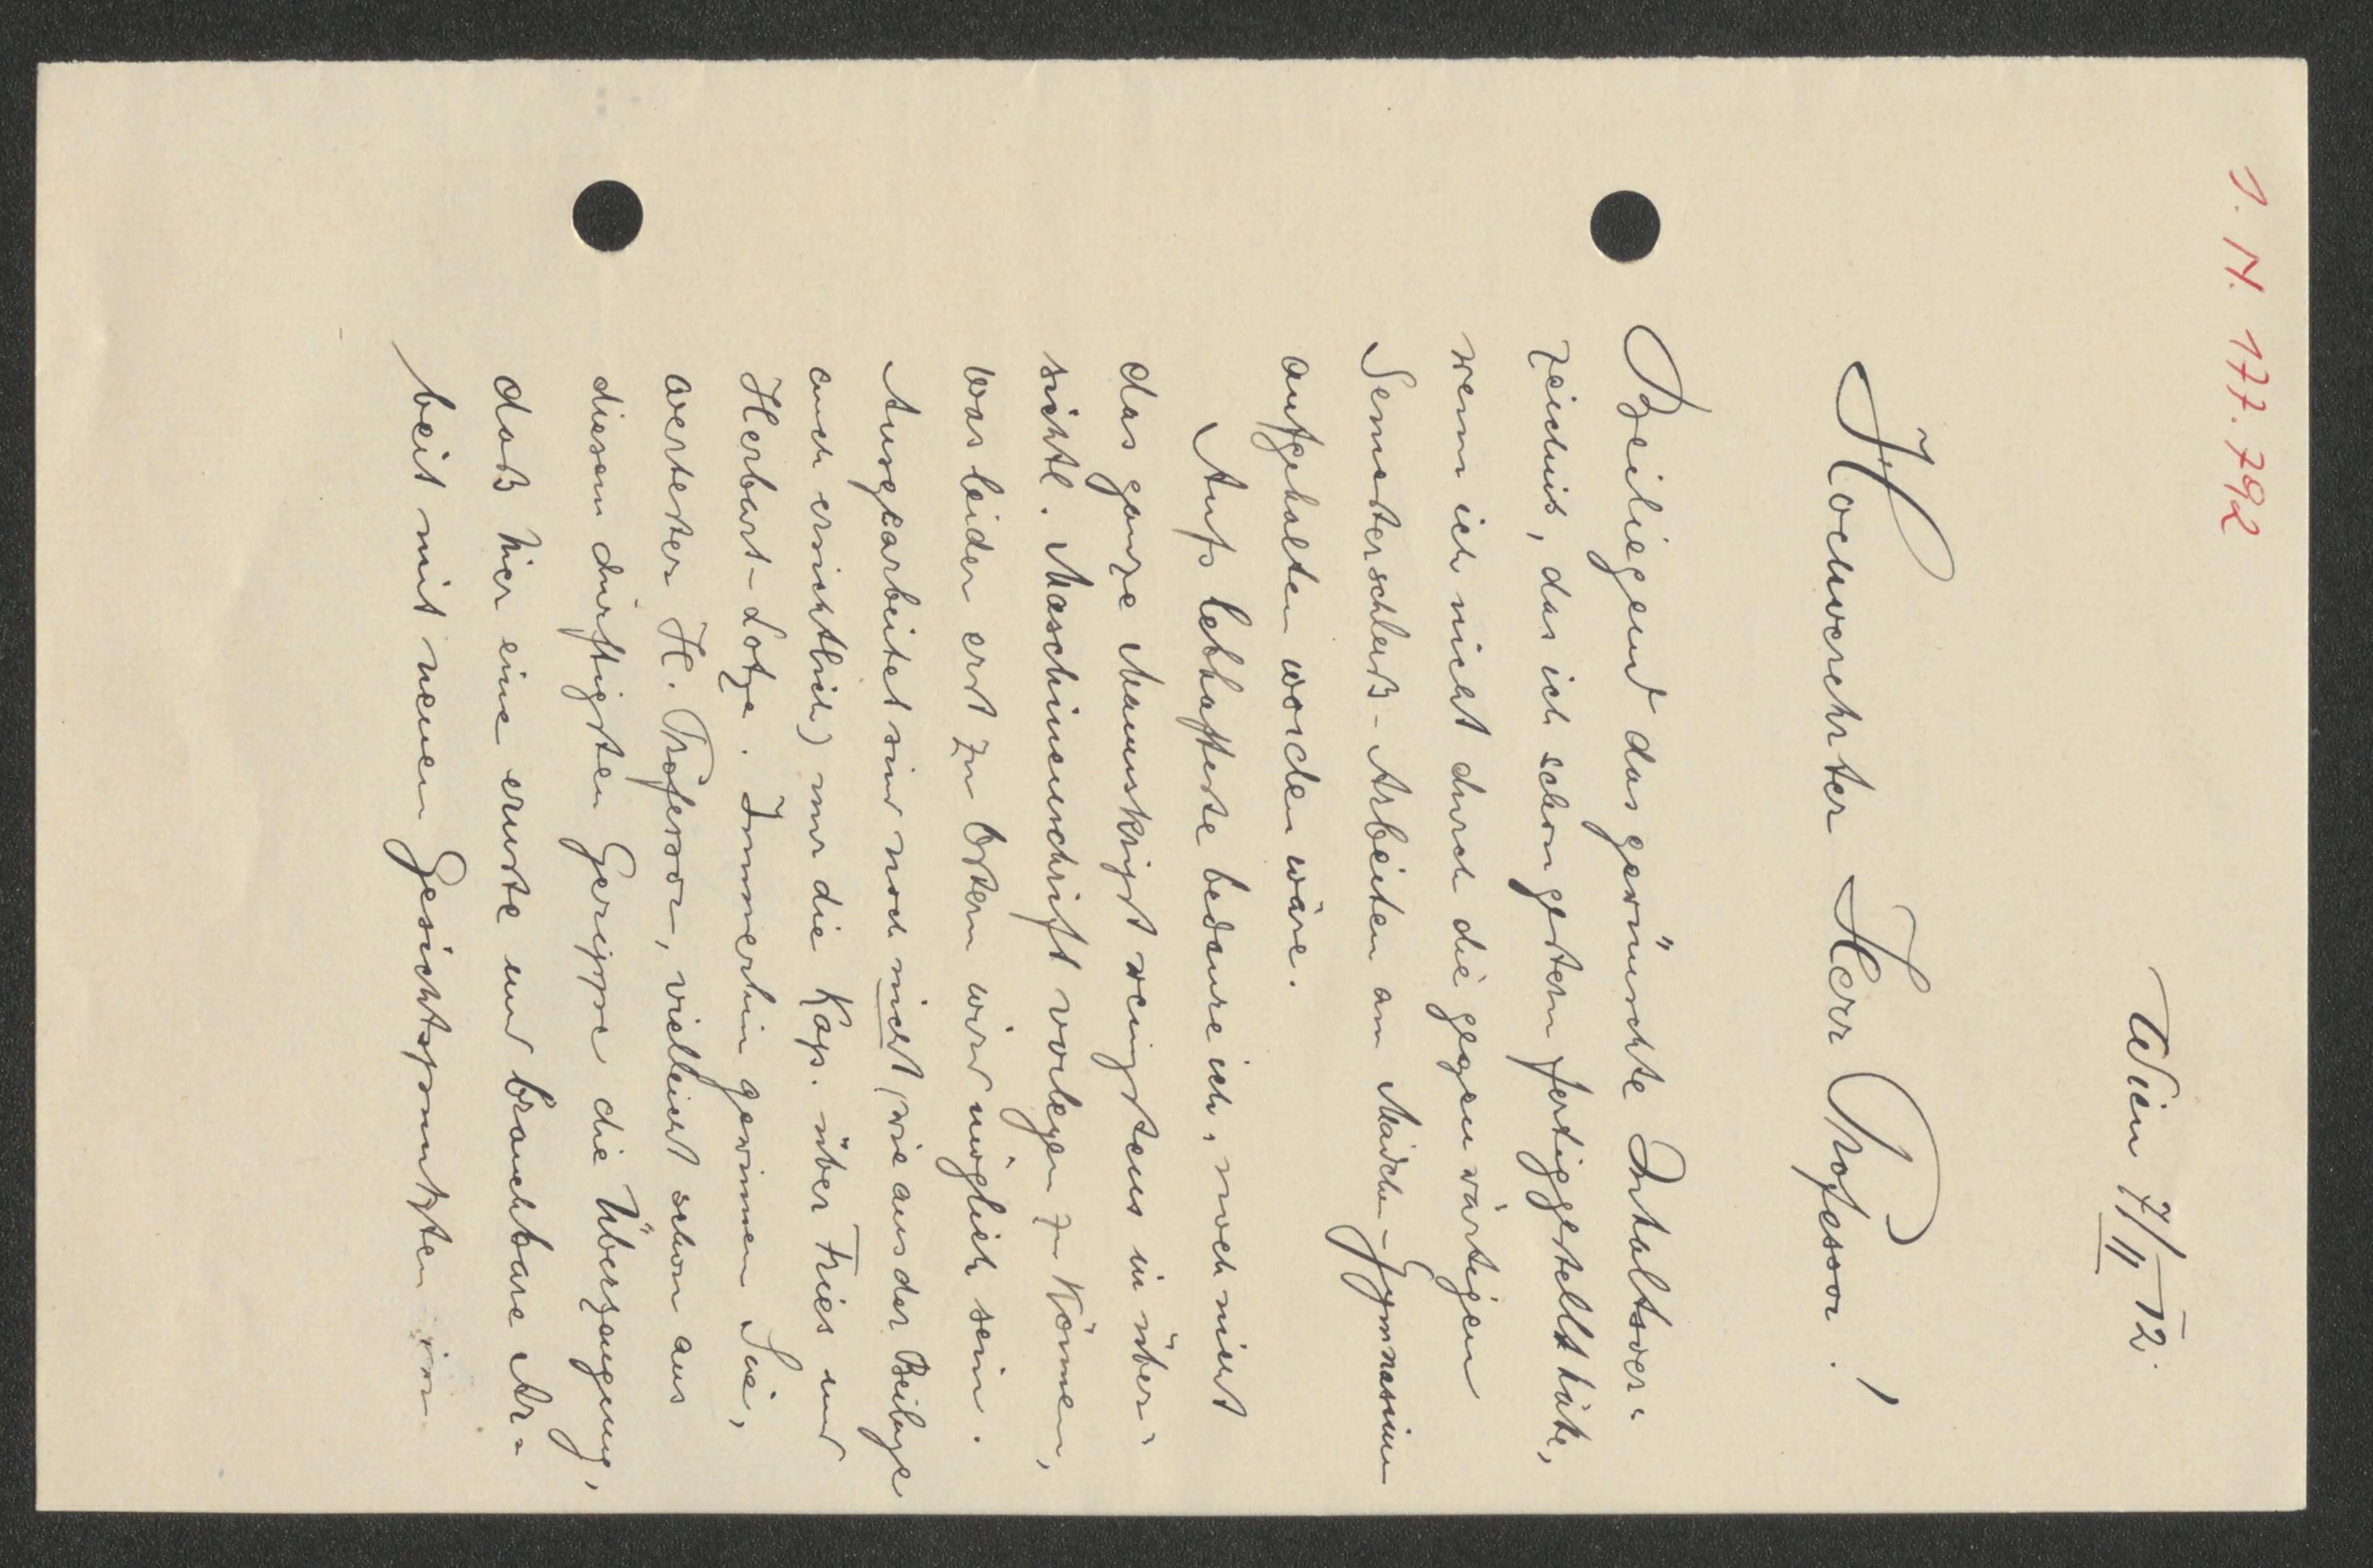 I. N. 177.792
Wien 7/II 12.
Hochverehrter Herr Professor!
Beiliegend das gewünschte Inhaltsver=
zeichnis, das ich schon gestern fertiggestellt hätte,
wenn ich nicht durch die gegenwärtigen
Semesterschluß-Arbeiten am Mädchen-Gymnasium
aufgehalten worden wäre.
Aufs lebhafteste bedaure ich, noch nicht
das ganze Manuskript wenigstens in über=
sichtl. Maschinenschrift vorlegen zu können,
was leider erst zu Ostern wird möglich sein.
Ausgearbeitet sind noch nicht (wie aus der Beilage
auch ersichtlich) nur die Kap. über Fries und
Herbart-Lotze. Immerhin gewinnen Sie,
verehrter H. Professor, vielleicht schon aus
diesem dürftigsten Gerippe die Überzeugung,
daß hier eine ernste und brauchbare Ar=
beit mit neuen Gesichtspunkten von